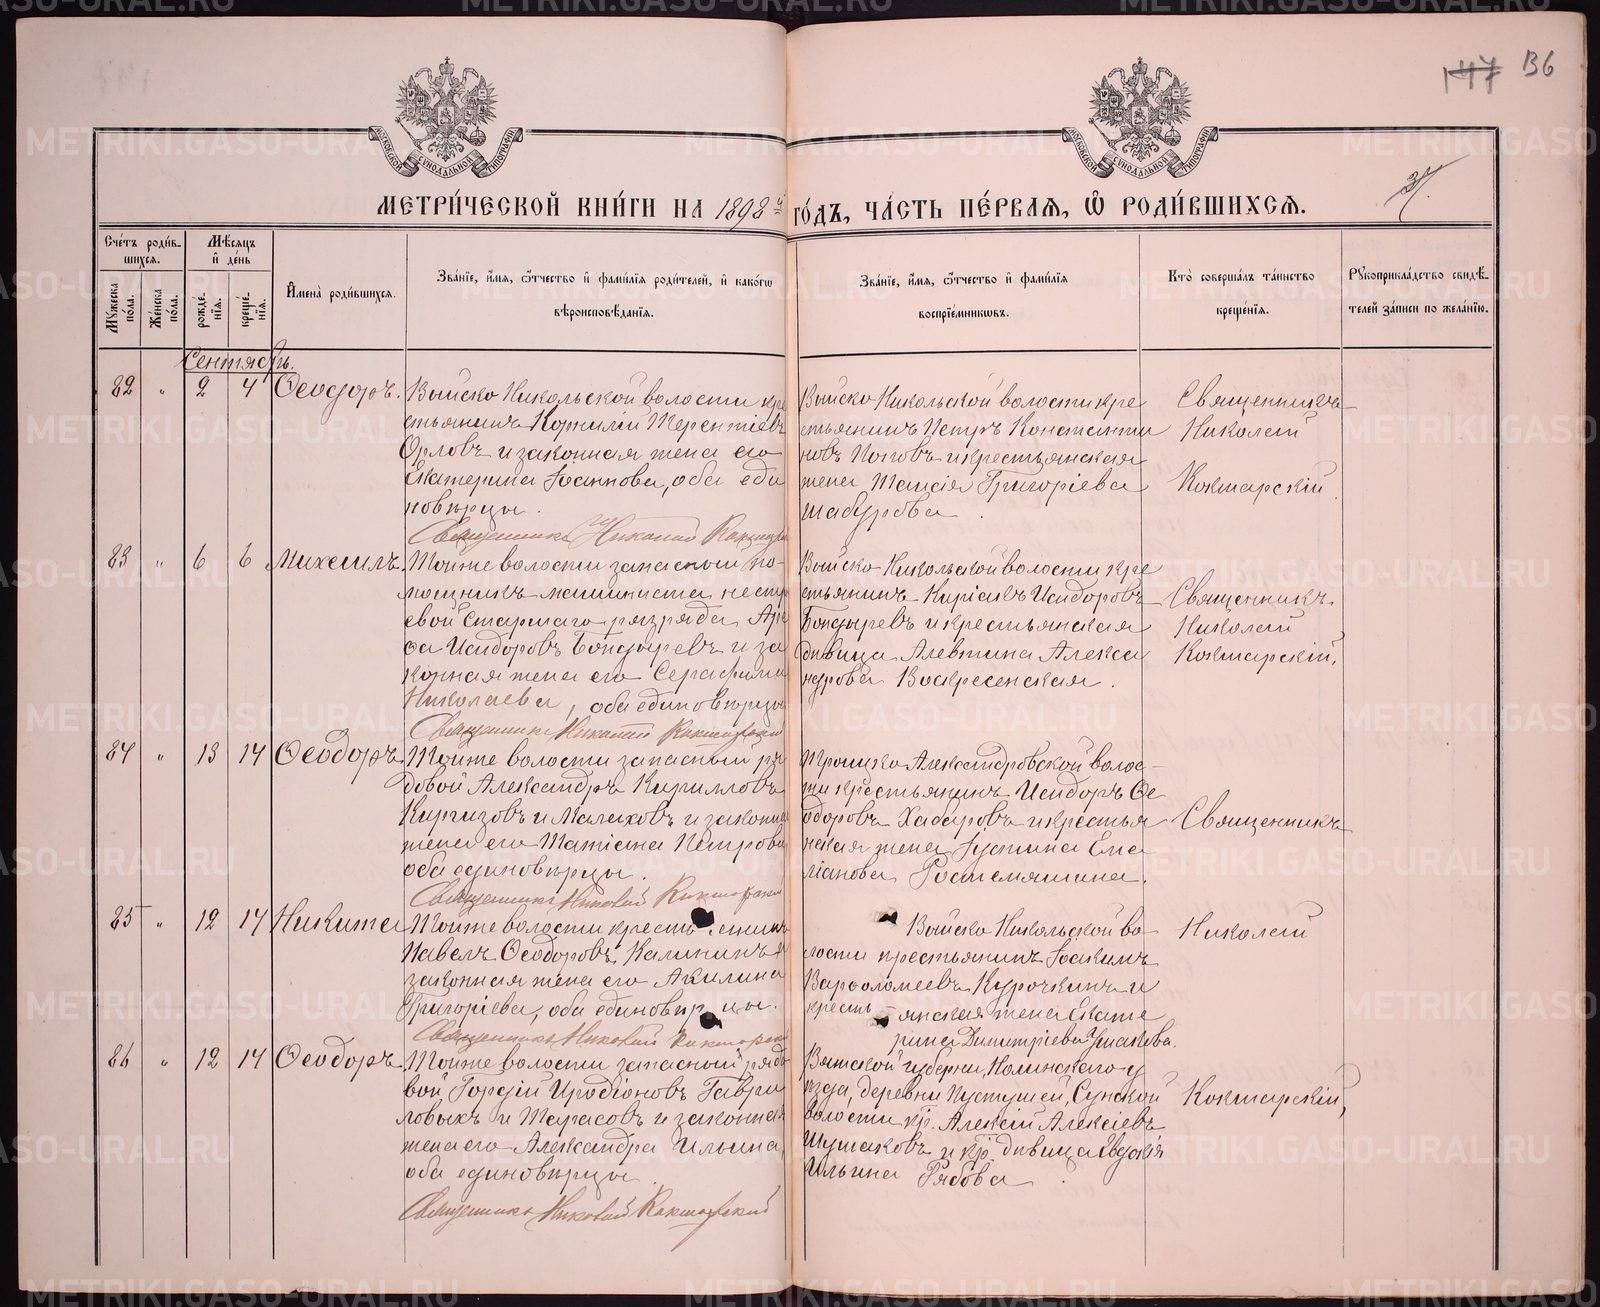 147 136
37.
МЕТРИ́ЧЕСКОЙ КНИ́ГИ НА 1898 й ГО́ДЪ, ЧА́СТЬ ПЕ́РВАЯ, Ѽ РОДИ́ВШИХСЯ.
Сче́тъ роди́в-
шихся.
Мѣсяцъ
и҆ де́нь
Мꙋжеска по́ла.
Же́нска по́ла.
рожде́-
нїѧ.
креще́-
нїѧ.
И҆мена̀ роди́вшихсѧ.
Зва́нїе, и҆́мѧ, ѻ҆́тчество и҆ фами́лїѧ роди́телей, и҆ како́гѡ
вѣроисповѣ́данїѧ.
Зва́нїе, и҆́мѧ, ѻ҆́тчество и҆ фами́лїѧ
воспрїе́мникѡвъ.
Кто̀ соверша́лъ та́инство
креще́нїѧ.
Рꙋкоприкла́дство свидѣ́-
телей за́писи по жела́нїю.
Сентябрь.
82 " 2 4 Ѳеодоръ.
Выйско Никольской волости кре
стьянинъ Корнилій Терентіевъ
Орловъ и законная жена его
Екатерина Іоаннова, оба еди
новѣрцы.
Священникъ Николай Кокшарскій
Выйско Никольской волости кре
стьянинъ Петръ Константи
новъ Поповъ и крестьянская
жена Таисія Григоріева
Шабурова.
Священникъ
Николай
Кокшарскій
83 " 6 6 Михаилъ.
Тойже волости запасный по-
мощникъ машиниста нестр
евой старшаго разряда
Исидоровъ Бондыревъ и за
конная жена его Серафима
Николаева, оба единовѣрцы
Священникъ Николай Кокшарскій
Выйско Никольской волости кре
стьянинъ Киріакъ Исидоровъ
Бондыревъ и крестьянская
дѣвица Алевтина Алекса
ндрова Воскресенская.
Священникъ.
Николай
Кокшарскій,
84 " 13 14 Ѳеодоръ.
Тойже волости запасный ря
довой Александръ Кирилловъ
Киргизовъ и Малаховъ и законная
жена его Татіана Петрова
оба единовѣрцы.
Священникъ Николай Кокшарскій
Троицко Александровской волос-
ти крестьянинъ Исидоръ Ѳе
одоровъ Хабаровъ и крестья
нская жена Іустина Еме
ліанова
Священникъ
85 " 12 14 Никита
Тойже волости крестьянинъ
Павелъ Ѳеодоровъ Калининъ и
законная жена его Акилина
Григоріева, оба единовѣрцы.
Священникъ Николай Кокшарскій
Выйско Никольской во
лости крестьянинъ Іоакимъ
Варѳоломеевъ Курочкинъ и
кресть янская жена Екате
рина Димитріева Ушакова.
Николай
86 " 12 14 Ѳеодоръ.
Тойже волости запасный рядо
вой Гордій Иродіоновъ Гаври
ловыхъ и Тарасовъ и законная
жена его Александра Ильина,
оба единовѣрцы.
Священникъ Николай Кокшарскій
Вятской губерніи, Нолинскаго у
ѣзда, деревни Пустушей, Сунской
волости кр. Алексій Алексіевъ
Шушаковъ и кр. дѣвица Евдокія
Ильина Рябова.
Кокшарскій,